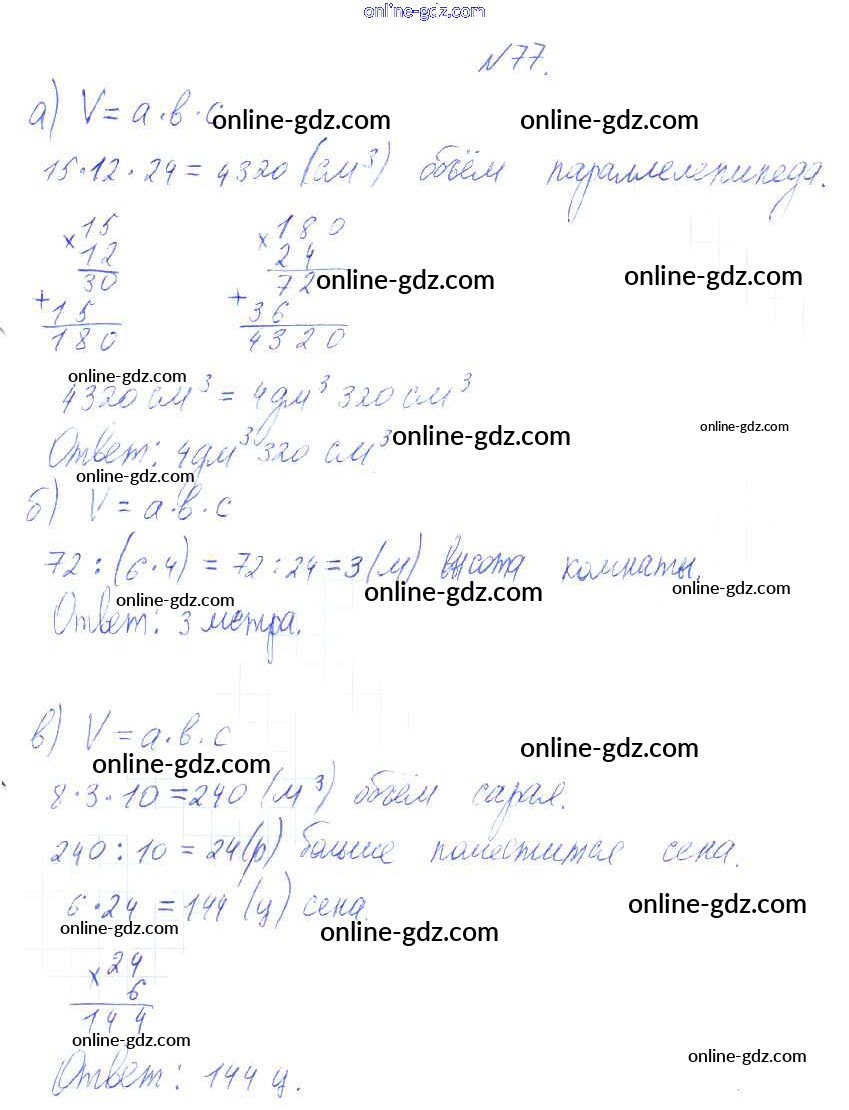 online-gdz.com
№77.
а) V = a·b·c online-gdz.com online-gdz.com
15·12·24 = 4320 (см³) объём параллелепипеда.
×15 ×180
12 24
30 72 online-gdz.com online-gdz.com
+15 +36
180 4320
online-gdz.com
4320 см³ = 4дм³ 320 см³
online-gdz.com
Ответ: 4дм³ 320 см³ online-gdz.com
online-gdz.com
б) V = a·b·c
72 : (6·4) = 72 : 24 = 3 (м) высота комнаты.
online-gdz.com online-gdz.com online-gdz.com
Ответ: 3 метра.
в) V = a·b·c
online-gdz.com online-gdz.com
8·3·10 = 240 (м³) объём сарая.
240 : 10 = 24 (р) больше поместится сена.
6·24 = 144 (ц) сена. online-gdz.com
online-gdz.com online-gdz.com
×24
6
144
online-gdz.com online-gdz.com
Ответ: 144 ц.